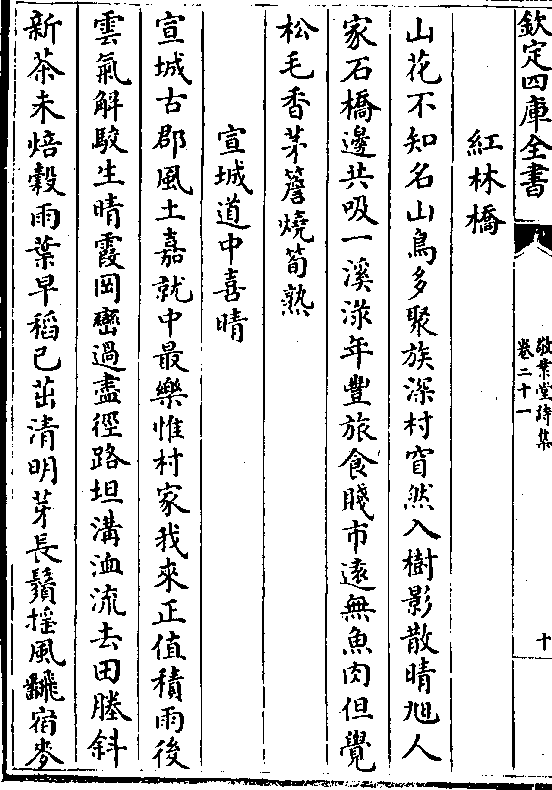 欽定四庫全書
敬業堂詩集
卷二十一
十
紅林橋
山花不知名山鳥多聚族深村窅然入樹影散晴旭人
家石橋邊共吸一溪渌年豐旅食賤市遠無魚肉但覺
松毛香茅簷燒筍熟
宣城道中喜晴
宣城古郡風土嘉就中最樂惟村家我來正值積雨後
雲氣解駮生晴霞岡巒過盡徑路坦溝洫流去田塍斜
新茶未焙穀雨葉早稻已茁清明芽長鬚揺風飜宿麥